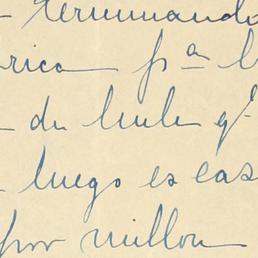 terminando
rica pª l
de hule qᵉ
luego es cas
por millon